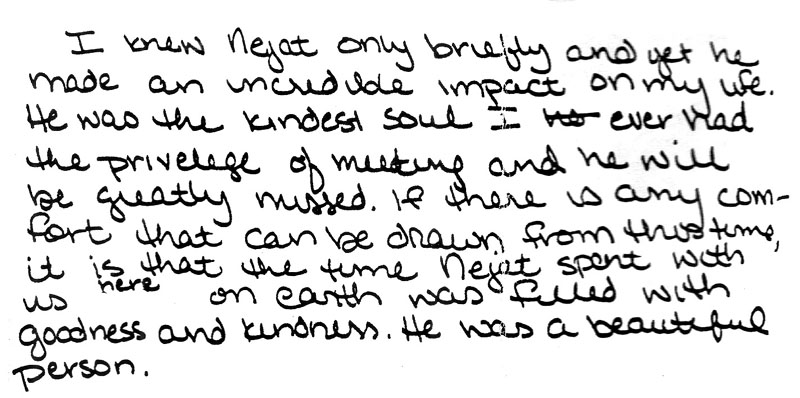 I knew Nejat only briefly and yet he
made an incredible impact on my life.
He was the kindest soul I ever had
the privelege of meeting and he will
be greatly missed. If there is any com-
fort that can be drawn from this time,
it is that the time Nejat spent with
us here on earth was filled with
goodness and kindness. He was a beautiful
person.